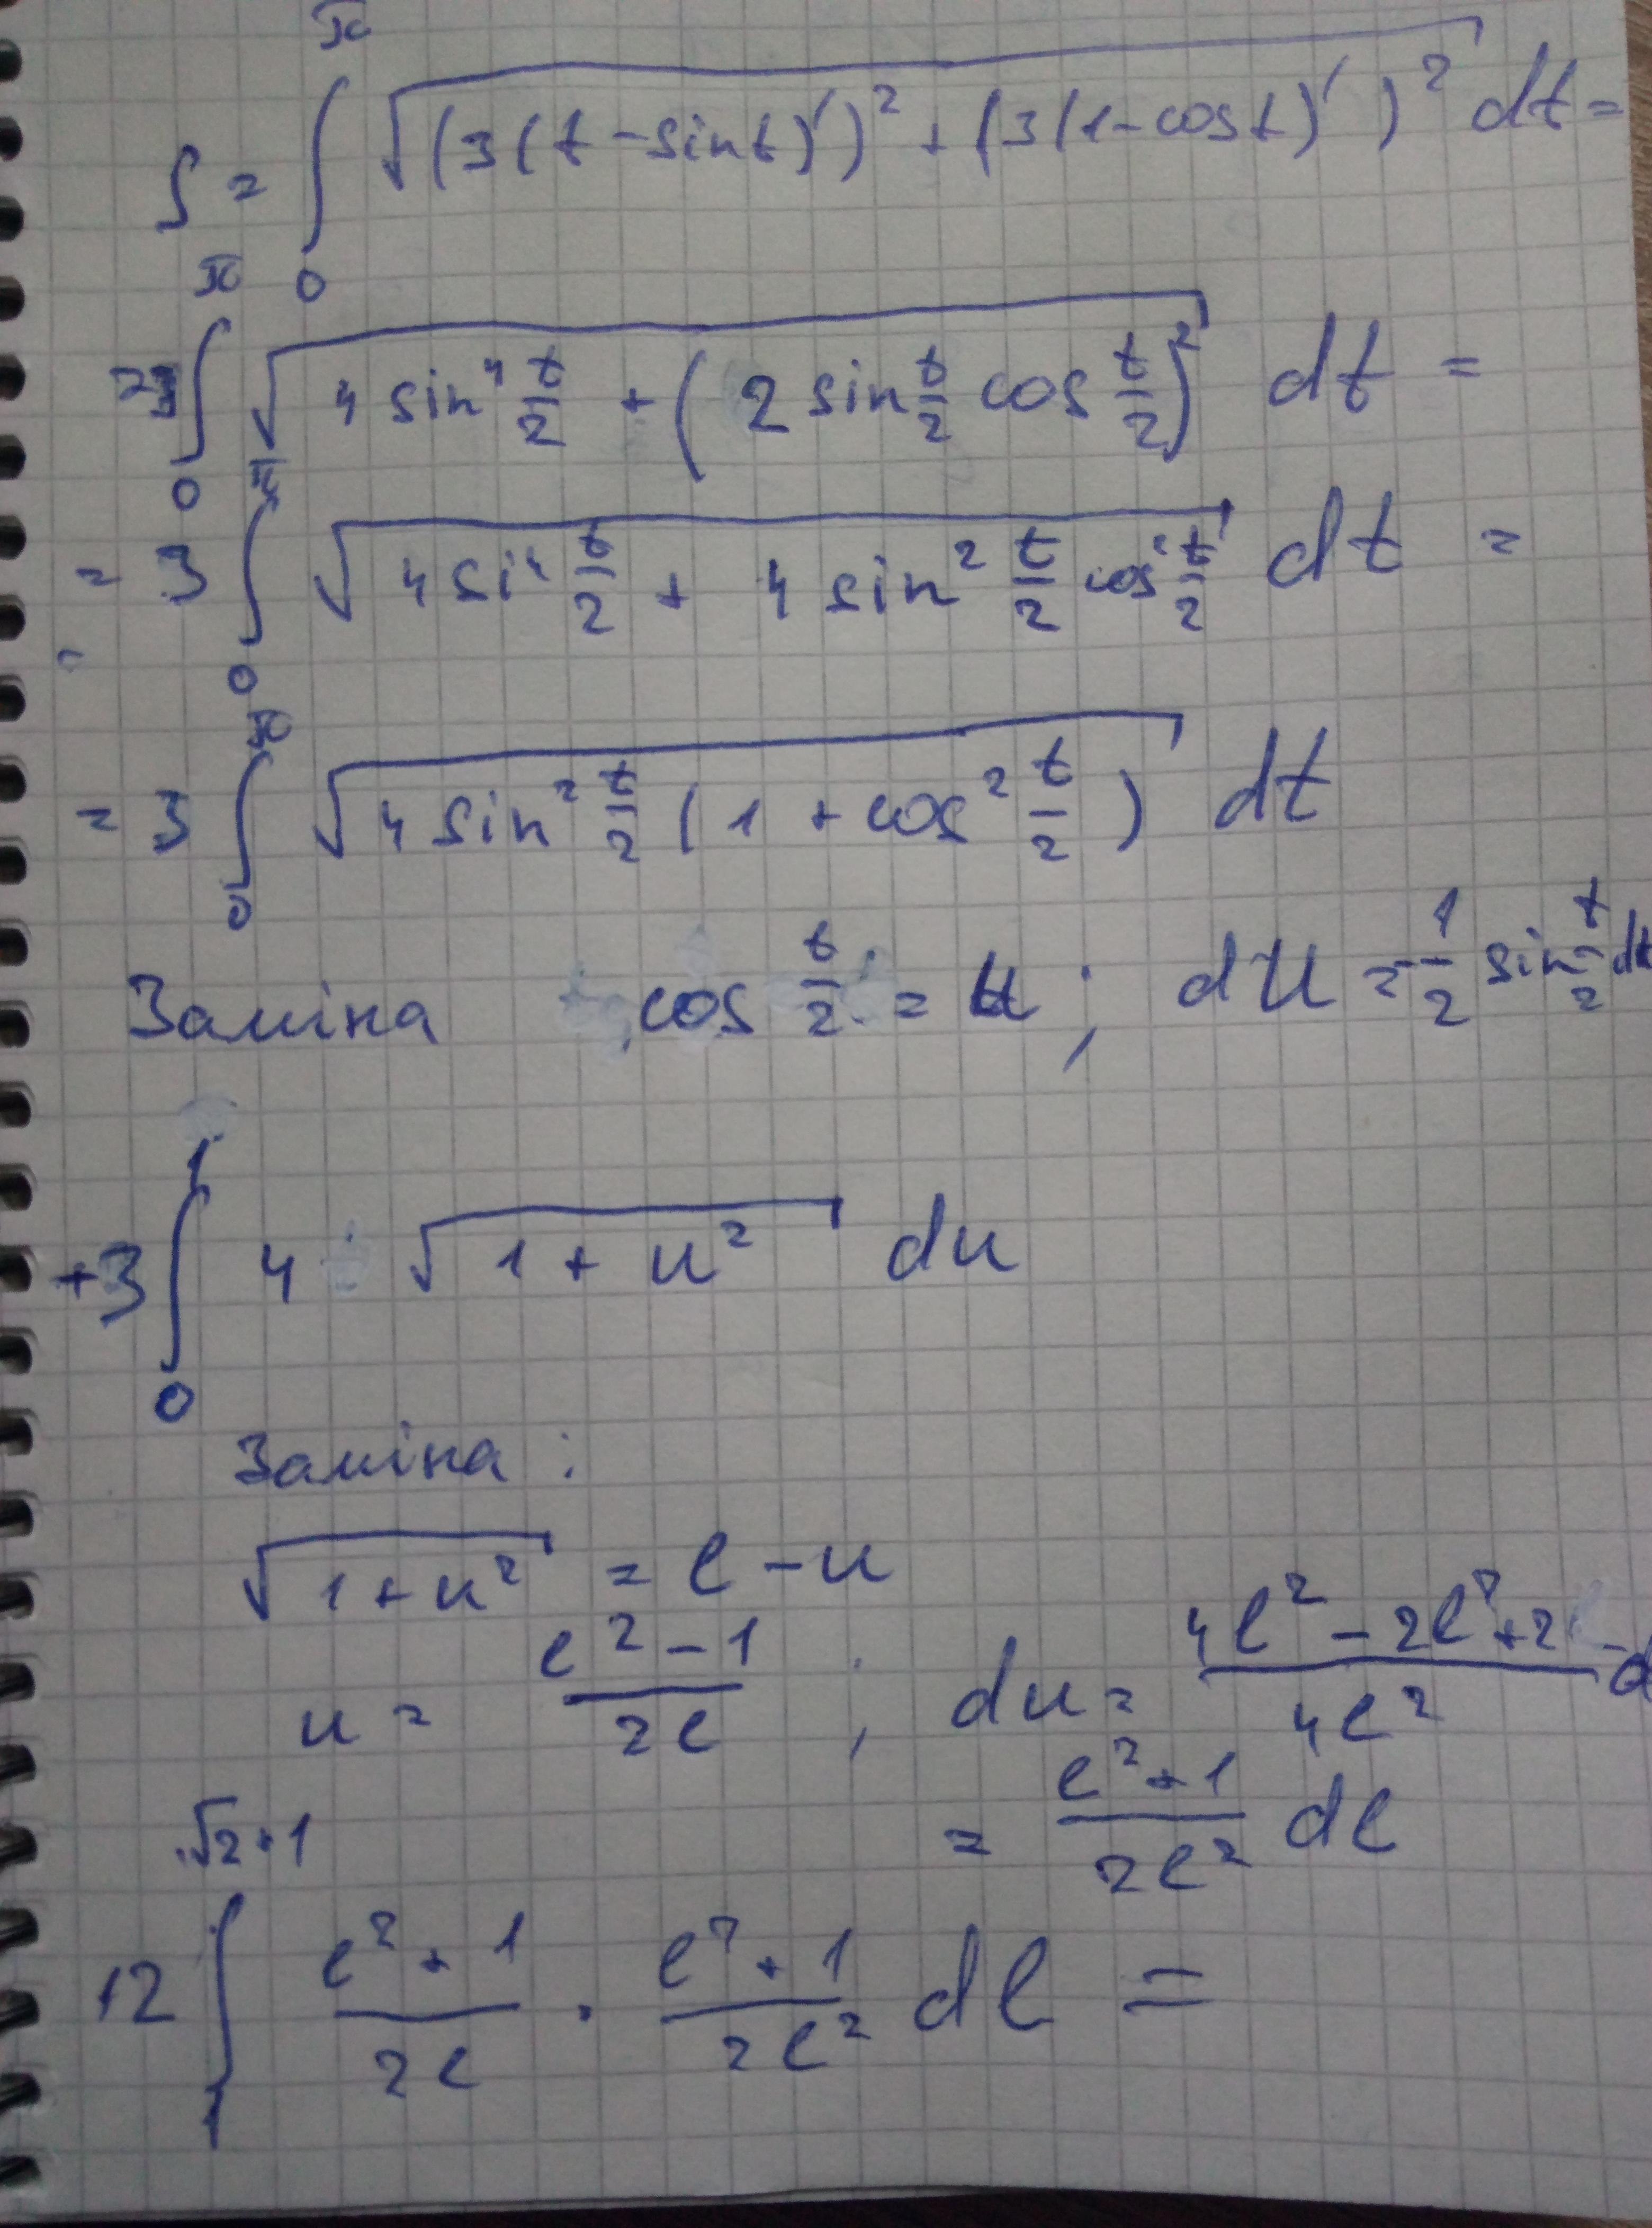 S = ∫₀^π √((3(t-sint)')² + (3(1-cost)')²) dt =
= 3 ∫₀^π √(4 sin⁴ t/2 + (2 sin t/2 cos t/2)²) dt =
= 3 ∫₀^π √(4 si⁴ t/2 + 4 sin² t/2 cos² t/2) dt =
= 3 ∫₀^π √(4 sin² t/2 (1 + cos² t/2)) dt
Заміна cos t/2 = u ; du = -1/2 sin t/2 dt
+3 ∫₀¹ 4 √(1 + u²) du
Заміна :
√(1+u²) = l - u
u = (l² - 1)/(2l) ; du = (4l² - 2l² + 2)/(4l²) d
= (l² + 1)/(2l²) dl
12 ∫₁^(√2+1) (l² + 1)/(2l) · (l² + 1)/(2l²) dl =